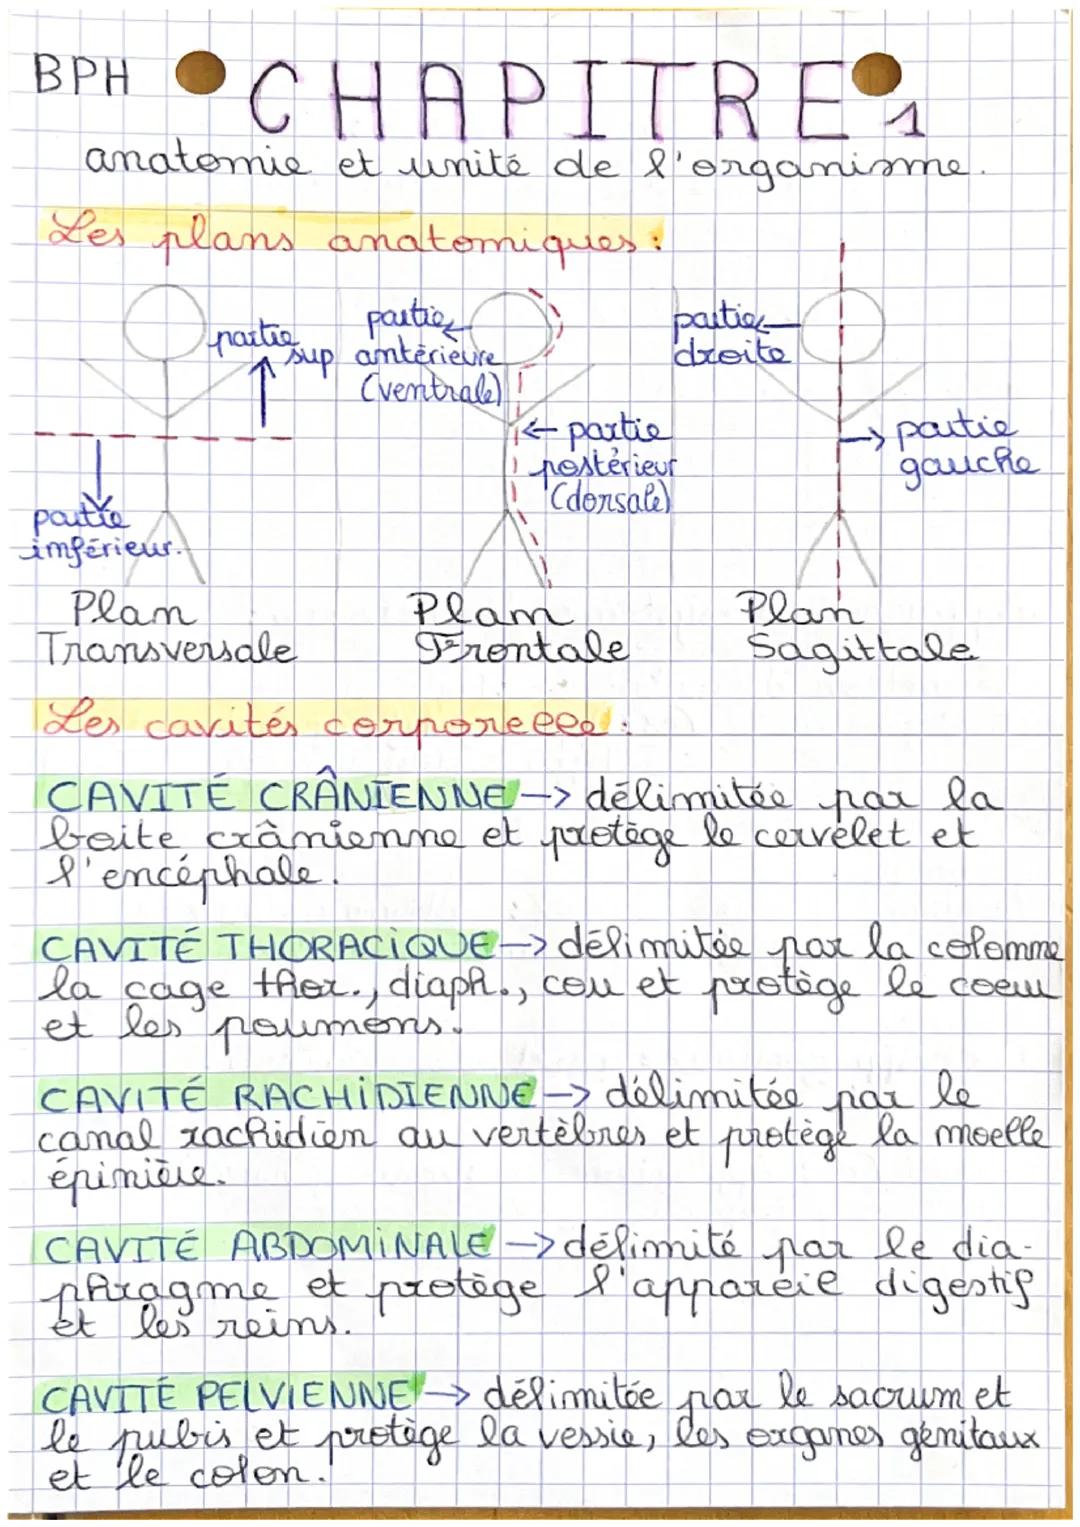 BPH CHAPITRE 1
anatomie et unité de l'organisme.
Les plans anatomiques :
partie sup
partie inférieur.
Plan
Transversale
partie
antérieure
(ventrale)
← partie
postérieur
(dorsale)
Plan
Frontale
partie
droite
→ partie
gauche
Plan
Sagittale
Les cavités corporelle :
CAVITÉ CRÂNIENNE → délimitée par la
boite crânienne et protège le cervelet et
l'encéphale.
CAVITÉ THORACIQUE → délimitée par la colonne
la cage thor., diaph., cou et protège le coeur
et les poumons.
CAVITÉ RACHIDIENNE → délimitée par le
canal rachidien au vertèbres et protège la moelle
épinière.
CAVITÉ ABDOMINALE → délimité par le dia-
phragme et protège l'appareil digestif
et les reins.
CAVITÉ PELVIENNE → délimitée par le sacrum et
le pubis et protège la vessie, les organes génitaux
et le colon.